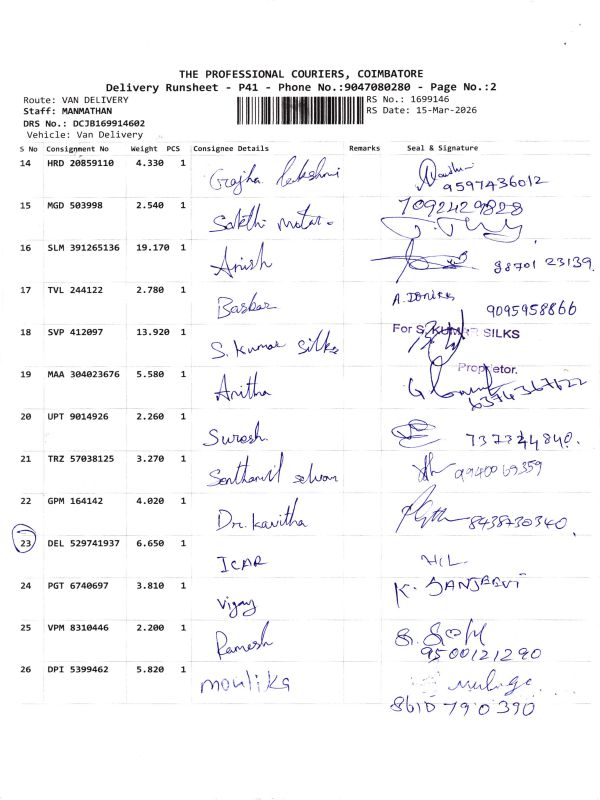 THE PROFESSIONAL COURIERS, COIMBATORE
Delivery Runsheet - P41 - Phone No.:9047080280 - Page No.:2
Route: VAN DELIVERY RS No.: 1699146
Staff: MANMATHAN RS Date: 15-Mar-2026
DRS No.: DCJB169914602
Vehicle: Van Delivery
S No Consignment No Weight PCS Consignee Details Remarks Seal & Signature
14 HRD 20859110 4.330 1 Grajha lekshmi
9597436012
15 MGD 503998 2.540 1 Sakthi motar. 7092429828
16 SLM 391265136 19.170 1 Anish 98701 23139
17 TVL 244122 2.780 1 Baskar 9095958866
18 SVP 412097 13.920 1 S. Kumar silks For S. KUMAR SILKS
Proprietor.
19 MAA 304023676 5.580 1 Anitha 6374367622
20 UPT 9014926 2.260 1 Suresh. 7377344840.
21 TRZ 57038125 3.270 1 Senthamil selvan 9940069359
22 GPM 164142 4.020 1 Dr. kavitha 8438730340.
23 DEL 529741937 6.650 1 ICAR
24 PGT 6740697 3.810 1 vijay K. SANJEEVI
25 VPM 8310446 2.200 1 Ramesh
9500121290
26 DPI 5399462 5.820 1 moulika
8610 790390